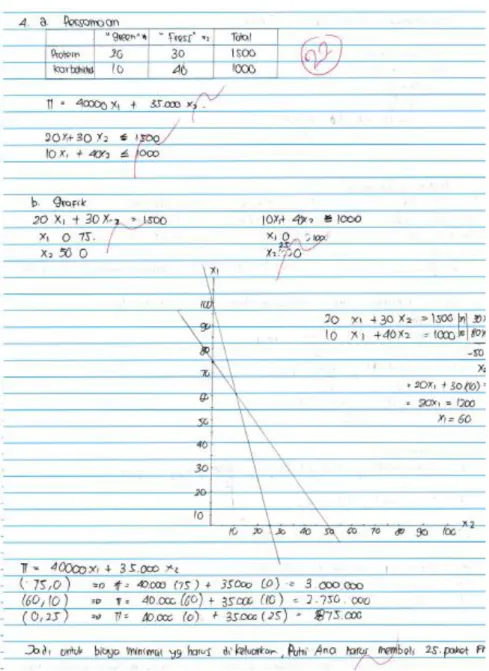 4. a. Persamaan
"Green" x1 "Fress" x2 Total
Protein 20 30 1500
Karbohidrat 10 40 1000
22
π = 40000 x1 + 35.000 x2.
20 x1 + 30 x2 ≤ 1500
10 x1 + 40x2 ≤ 1000
b. Grafik
20 x1 + 30 x2 = 1500
x1 0 75.
x2 50 0
10x1 + 40x2 = 1000
x1 0 100
x2 25 0
x1
100
90
80
70
60
50
40
30
20
10
10 20 30 40 50 60 70 80 90 100 x2
20 x1 + 30 x2 = 1500
10 x1 + 40x2 = 1000
-50
= 20x1 + 30(10) =
= 20x1 = 1200
x1 = 60
π = 40000x1 + 35.000 x2
(75,0) => π = 40.000 (75) + 35000 (0) = 3.000.000
(60,10) => π = 40.000 (60) + 35.000 (10) = 2.750.000
(0,25) => π = 40.000 (0) + 35.000 (25) = 875.000
Jadi untuk biaya minimal yg harus dikeluarkan, Putri Ana harus membeli 25 paket